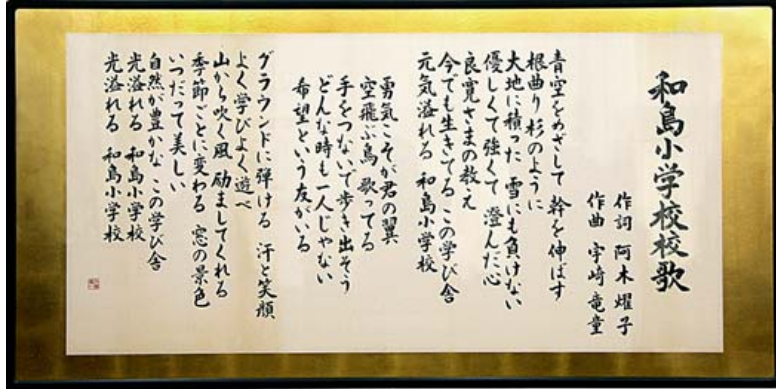 和島小学校校歌
作詞 阿木燿子
作曲 宇崎竜童
青空をめざして 幹を伸ばす
根曲り杉のように
大地に積った 雪にも負けない
優しくて強くて 澄んだ心
良寛さまの教え
今でも生きてる この学び舎
元気溢れる 和島小学校
勇気こそが君の翼
空飛ぶ鳥 歌ってる
手をつないで歩き出そう
どんな時も一人じゃない
希望という友がいる
グラウンドに弾ける 汗と笑顔
よく学びよく遊べ
山から吹く風 励ましてくれる
季節ごとに変わる 窓の景色
いつだって美しい
自然が豊かな この学び舎
光溢れる 和島小学校
光溢れる 和島小学校